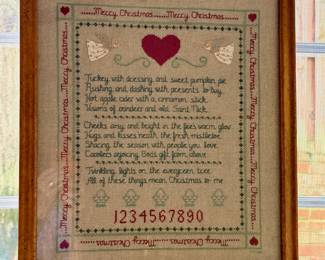 ......Merry Christmas......Merry Christmas......
Turkey with dressing and sweet pumpkin pie
Rushing and dashing with presents to buy
Hot apple cider with a cinnamon stick
Visions of reindeer and old Saint Nick
Cheeks rosy and bright in the fire's warm glow
Hugs and kisses neath the fresh mistletoe
Sharing the season with people you love
Carolers singing God's gift from above
Twinkling lights on the evergreen tree
All of these things mean Christmas to me
1234567890
Merry Christmas......Merry Christmas......Merry Christmas
Merry Christmas......Merry Christmas......Merry Christmas
......Merry Christmas......Merry Christmas